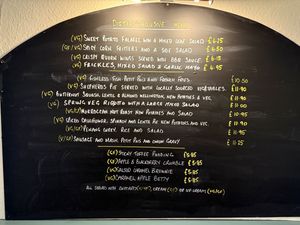 DIETARY INCLUSIVE MENU
(VG) SWEET POTATO FALAFEL WITH A MIXED LEAF SALAD £6.25
(GF/VG) SPICY CORN FRITTERS AND A SIDE SALAD £6.50
(VG) CRISPY QUORN WINGS SERVED WITH BBQ SAUCE £6.15
(VG) FRICKLES, MIXED SALAD & GARLIC MAYO £6.45
(VG) FISHLESS FISH PETIT POIS AND FRENCH FRIES £10.50
(VG) SHEPHERDS PIE SERVED WITH LOCALLY SOURCED VEGETABLES. £11.90
(VG) BUTTERNUT SQUASH, LENTIL & ALMOND WELLINGTON, NEW POTATOES & VEG £11.90
(VG) VEG RISOTTO WITH A LARGE MIXED SALAD £11.90
(VG/GF) MOROCCAN NUT ROAST NEW POTATOES AND SALAD £10.95
(VG) CAULIFLOWER, SPINACH AND LENTIL PIE NEW POTATOES AND VEG. £11.90
(VG/GF) PENANG CURRY, RICE AND SALAD £11.95
(V) SAUSAGE AND MASH, PETIT POIS AND ONION GRAVY £11.25
(GF) STICKY TOFFEE PUDDING £5.85
(GF) APPLE & BLACKBERRY CRUMBLE £5.85
(VG) SALTED CARAMEL BROWNIE £5.85
(VG) CARAMEL APPLE BETTY £5.85
ALL SERVED WITH CUSTARD CREAM OR ICE CREAM